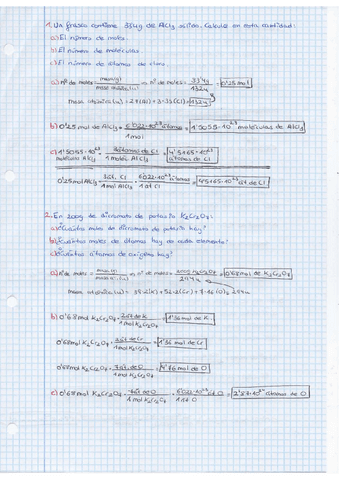 1. Un frasco contiene 33'4g de AlCl3 sólido. Calcula en esta cantidad:
a) El número de moles.
b) El número de moléculas.
c) El número de átomos de cloro.
a) nº de moles = masa(g) / masa atómica(u) ⇒ nº de moles = 33'4g / 132u = 0'25 mol
masa atómica (u) = 27(Al) + 3·35(Cl) = 132u
b) 0'25 mol de AlCl3 · 6'022·10^23 átomos / 1 mol = 1'5055·10^23 moléculas de AlCl3
c) 1'5055·10^23 moléculas AlCl3 · 3 átomos de Cl / 1 moléc AlCl3 = 4'5165·10^23 átomos de Cl
0'25 mol AlCl3 · 3 at. Cl / 1 mol AlCl3 · 6'022·10^23 átomos / 1 at Cl = 4'5165·10^23 at de Cl
2. En 200g de dicromato de potasio K2Cr2O7:
a) ¿Cuántos moles de dicromato de potasio hay?
b) ¿Cuántos moles de átomos hay de cada elemento?
c) ¿Cuántos átomos de oxígeno hay?
a) Nº de moles = masa(g) / masa atómica(u) ⇒ nº de moles = 200g K2Cr2O7 / 294u = 0'68 mol de K2Cr2O7
masa atómica (u) = 39·2(K) + 52·2(Cr) + 7·16(O) = 294u
b) 0'68 mol K2Cr2O7 · 2 at de K / 1 mol K2Cr2O7 = 1'36 mol de K
0'68 mol K2Cr2O7 · 2 at de Cr / 1 mol K2Cr2O7 = 1'36 mol de Cr
0'68 mol K2Cr2O7 · 7 at. de O / 1 mol K2Cr2O7 = 4'76 mol de O
c) 0'68 mol K2Cr2O7 · 7 at de O / 1 mol K2Cr2O7 · 6'022·10^23 átomos / 1 at O = 2'87·10^24 átomos de O